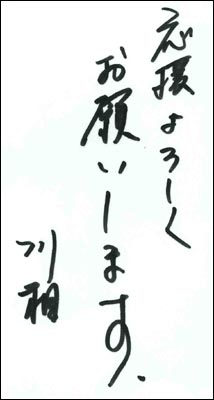 応援よろしく
お願いします.
川相